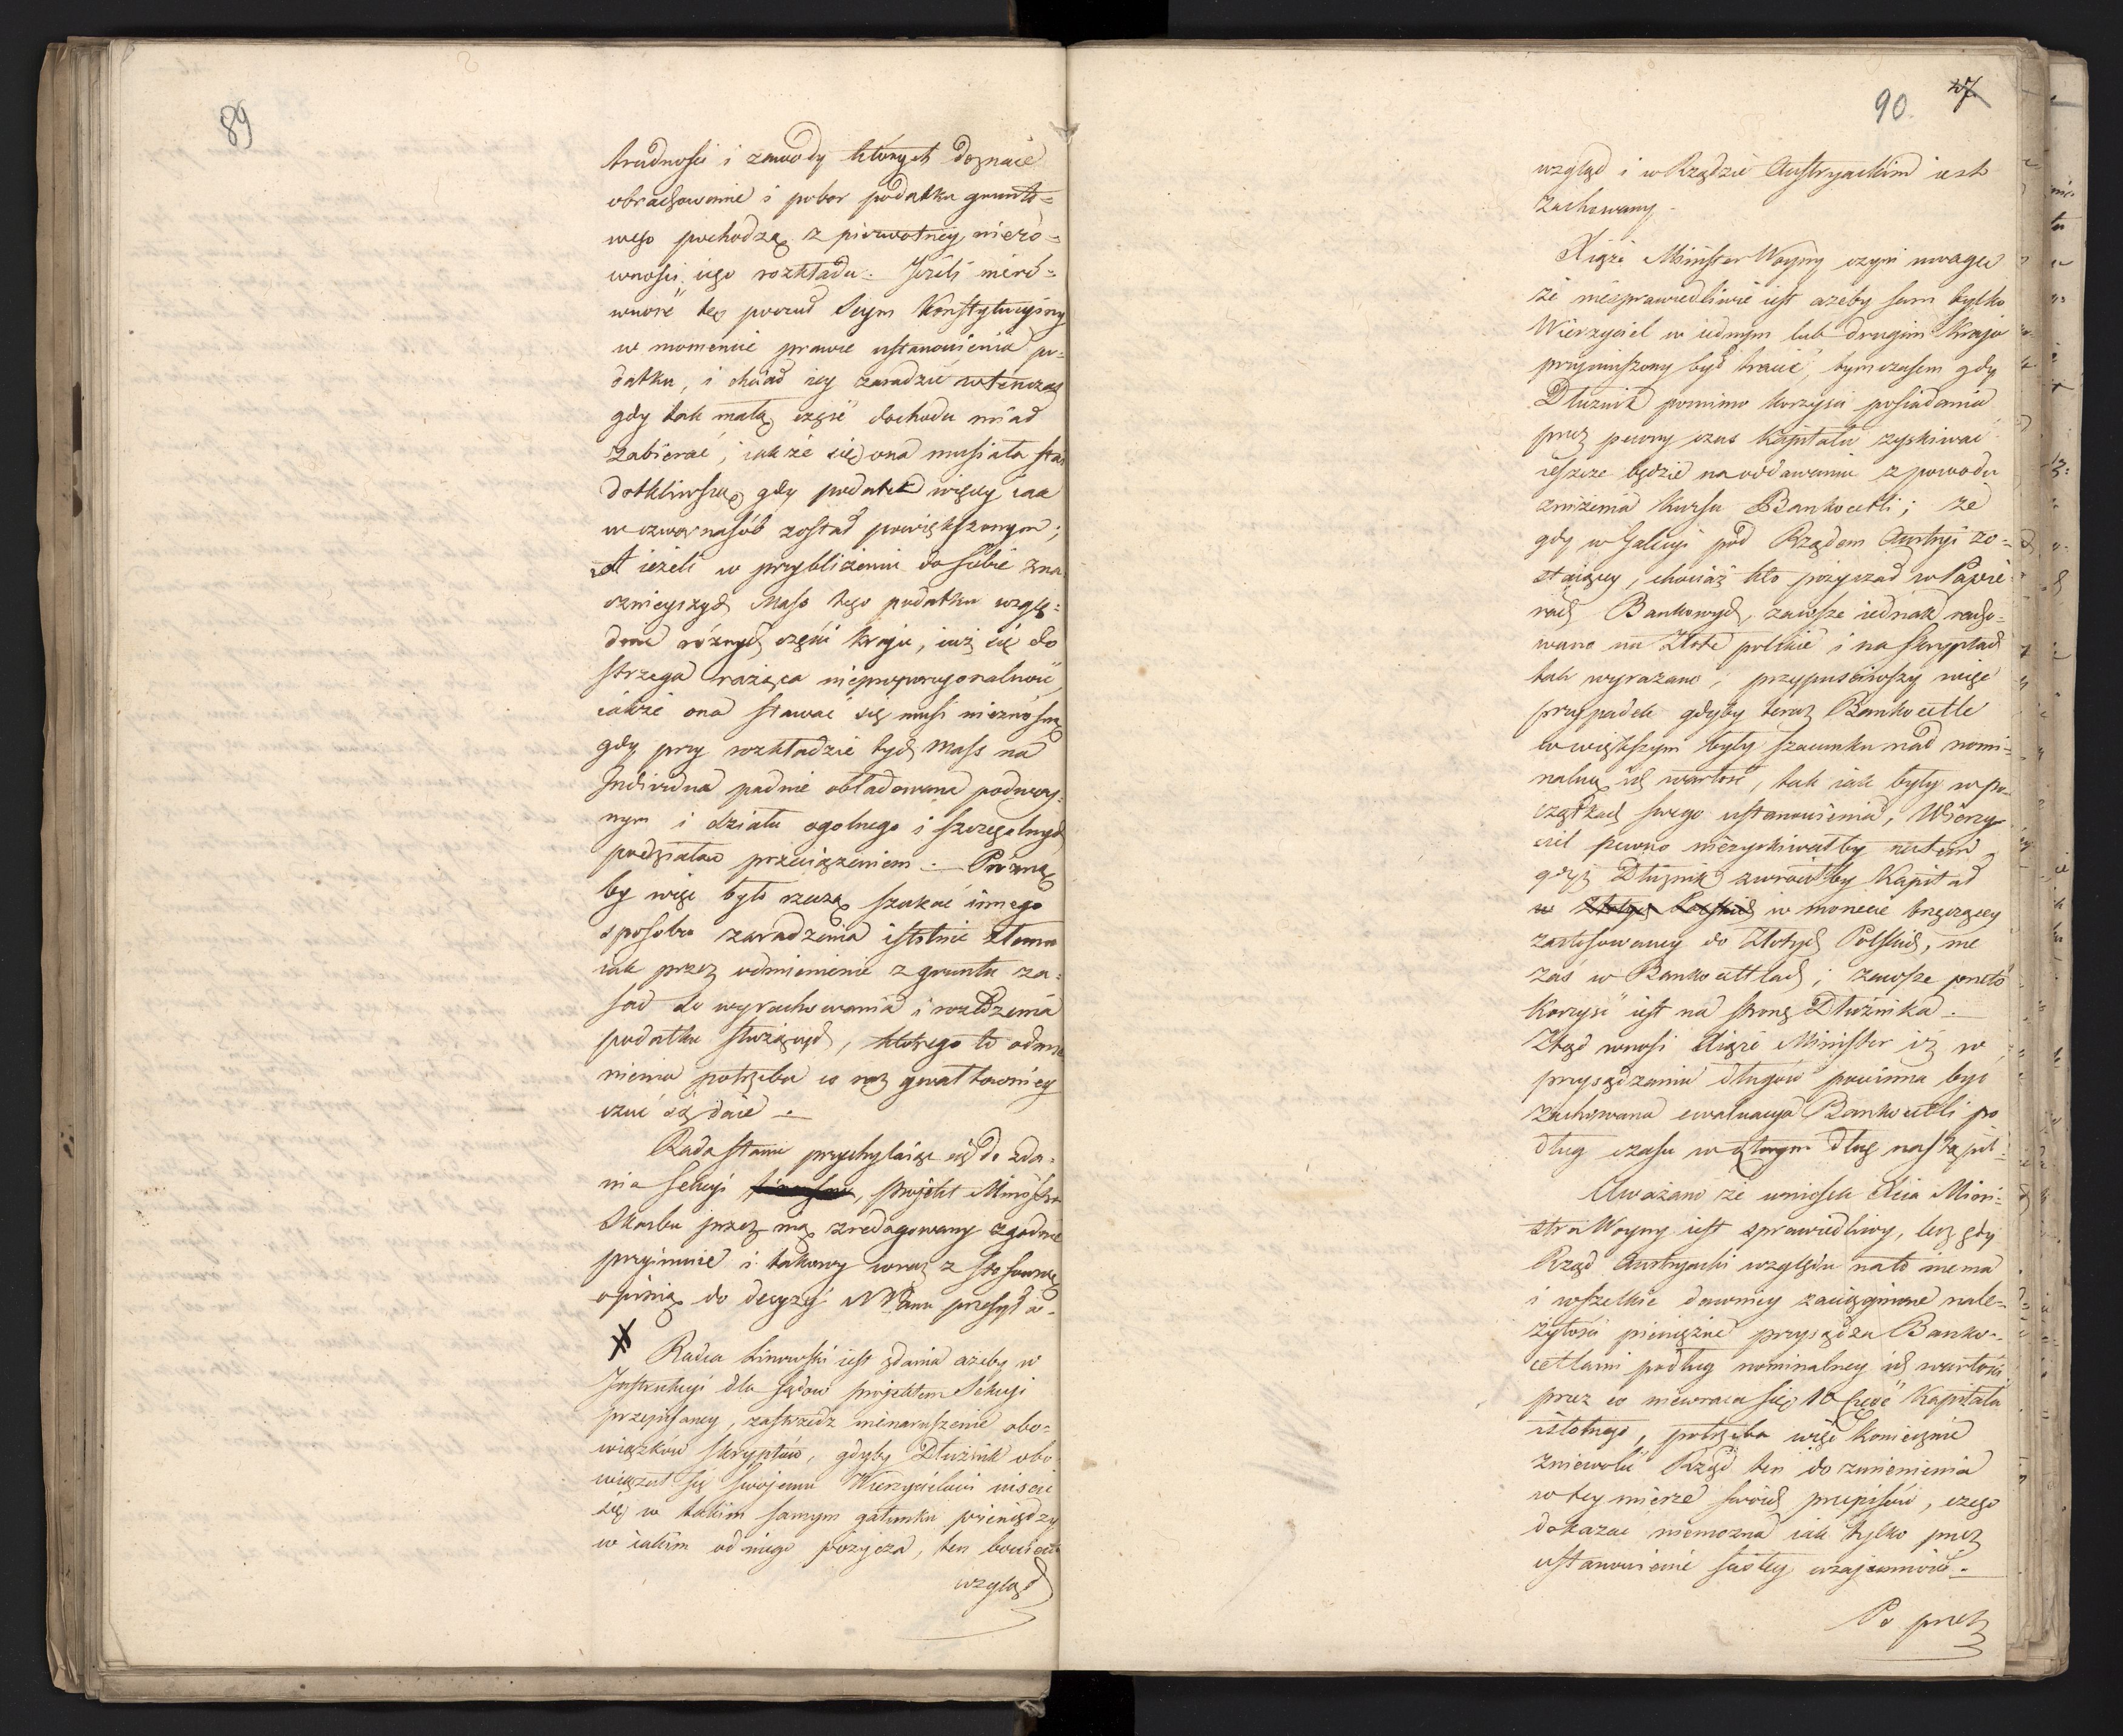 89
trudności i zawody których doznaie
obrachowanie i pobor podatku grunto=
wego pochodzą z pierwotney nieró=
wności iego rozkładu. Jeżeli nieró=
wność tę poczuł Seym Konstytucyiny
w momencie prawie ustanowienia po=
datku, i chciał iey zaradzić wtenczas
gdy tak małą część dochodu miał
zabierać, iakże się ona musiała stać
dotkliwszą gdy podatek więcey iak
w czwornasób został powiększonym;
A ieżeli w przybliżeniu do siebie zna
cznieyszych Mass tego podatku wzglę=
dem różnych części kraju, iuż się do
strzega rażąca nieproporcyonalność,
iakże ona stawać się musi nieznośną
gdy przy rozkładzie tych Mass na
Individua padnie obładowana podwoy=
nym i działu ogolnego i szczegolnych
podziałów przeciążeniem. — Prożną
by więc było rzeczą szukać innego
sposobu zaradzenia istotnie złemu
iak przez odmienienie z gruntu za=
sad do wyrachowania i rozłożenia
podatku służących, którego to odmie
nienia potrzeba co raz gwałtowniey
czuć się daie —
Rada Stanu przychylaiąc się do zda=
nia Sekcyi, projekt Ministra
Skarbu przez nią zredagowany zgodnie
przyimuie i takowy wraz z stosowną
opinią do decyzyi N Pana przesyła.
Radca Linowski iest zdania ażeby w
Instrukcyi dla sądów projektem Sekcyi
przepisaney, zastrzedz nienaruszenie obo=
wiązków skryptów, gdyby Dłużnik obo
wiązał się swojemu Wierzycielowi uiścić
się w takim samym gatunku pieniędzy
w iakim od niego pożycza, ten bowiem
wzgląd
90.
27.
wzgląd i w Rządzie Austryackim iest
zachowany.
Xiąże Minister Woyny czyni uwagę
że niesprawiedliwie iest ażeby sam tylko
Wierzyciel w iednym lub drugim Kraju
przymuszony był tracić, tymczasem gdy
Dłużnik pomimo korzyści posiadania
przez pewny czas Kapitału zyskiwać
ieszcze będzie na oddawaniu z powodu
zniżenia kursu Bankocetli; że
gdy w Galicyi pod Rządem Austryi zo=
staiącey, chociaż kto pożyczał w Papie=
rach Bankowych, zawsze iednak racho=
wano na Złote polskie i na skryptach
tak wyrażano; przypuściwszy więc
przypadek gdyby teraz Bankocetle
w większym były szacunku nad nomi=
nalną ich wartość, tak iak były w po=
czątkach swego ustanowienia, Wierzy
ciel pewno niezyskiwałby na tem
gdyż Dłużnik zwróciłby Kapitał
w monecie brzęczącey
zastosowaney do Złotych Polskich, nie
zaś w Bankocetlach; zawsze przeto
korzyść iest na stronę Dłużnika. —
Ztąd wnosi Xiąże Minister iż w
przysądzaniu długów powinna być
zachowana ewaluacya Bankocetli po
dług czasu w którym dług nastąpił.
Uważano że wniosek Xcia Mini=
stra Woyny iest sprawiedliwy, lecz gdy
Rząd Austryacki względu na to niema
i wszelkie dawniey zaciągnione nale=
żytości pieniężne przysądza Banko=
cetlami podług nominalney ich wartości,
przez co niewraca się 10 część Kapitału
istotnego, potrzeba więc koniecznie
zniewolić Rząd ten do zmienienia
w tey mierze swoich przepisów, czego
dokazać niemożna iak tylko przez
ustanowienie ścisłey wzajemności. —
Po prze